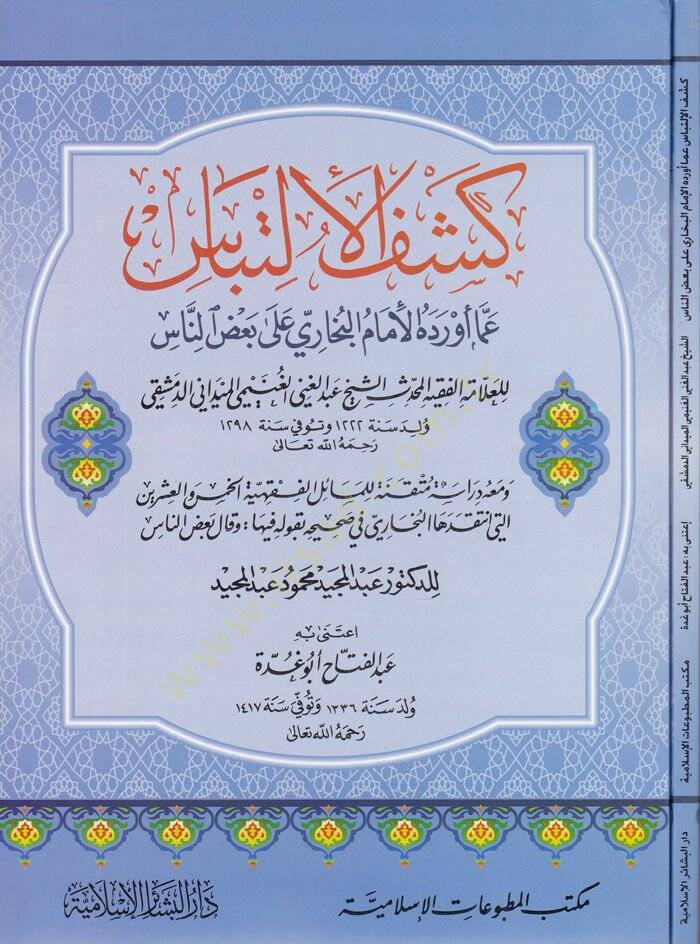 كشف الالتباس
عما أورده الإمام البخاري على بعض الناس
للعلامة الفقيه المحدث الشيخ عبد الغني الغنيمي الميداني الدمشقي
ولد سنة ١٢٢٢ وتوفي سنة ١٢٩٨
رحمه الله تعالى
ومعه دراسة متقنة للمسائل الفقهية الخمس والعشرين
التي انتقدها البخاري في صحيحه بقوله فيها: وقال بعض الناس
للدكتور عبد المجيد محمود عبد المجيد
اعتنى به
عبد الفتاح أبو غدة
ولد سنة ١٣٣٦ وتوفي سنة ١٤١٧
رحمه الله تعالى
مكتب المطبوعات الإسلامية
دار البشائر الإسلامية
كشف الإلتباس عما أورده الإمام البخاري على بعض الناس الشيخ عبد الغني الغنيمي الميداني الدمشقي إعتنى به: عبد الفتاح أبو غدة مكتب المطبوعات الإسلامية دار البشائر الإسلامية